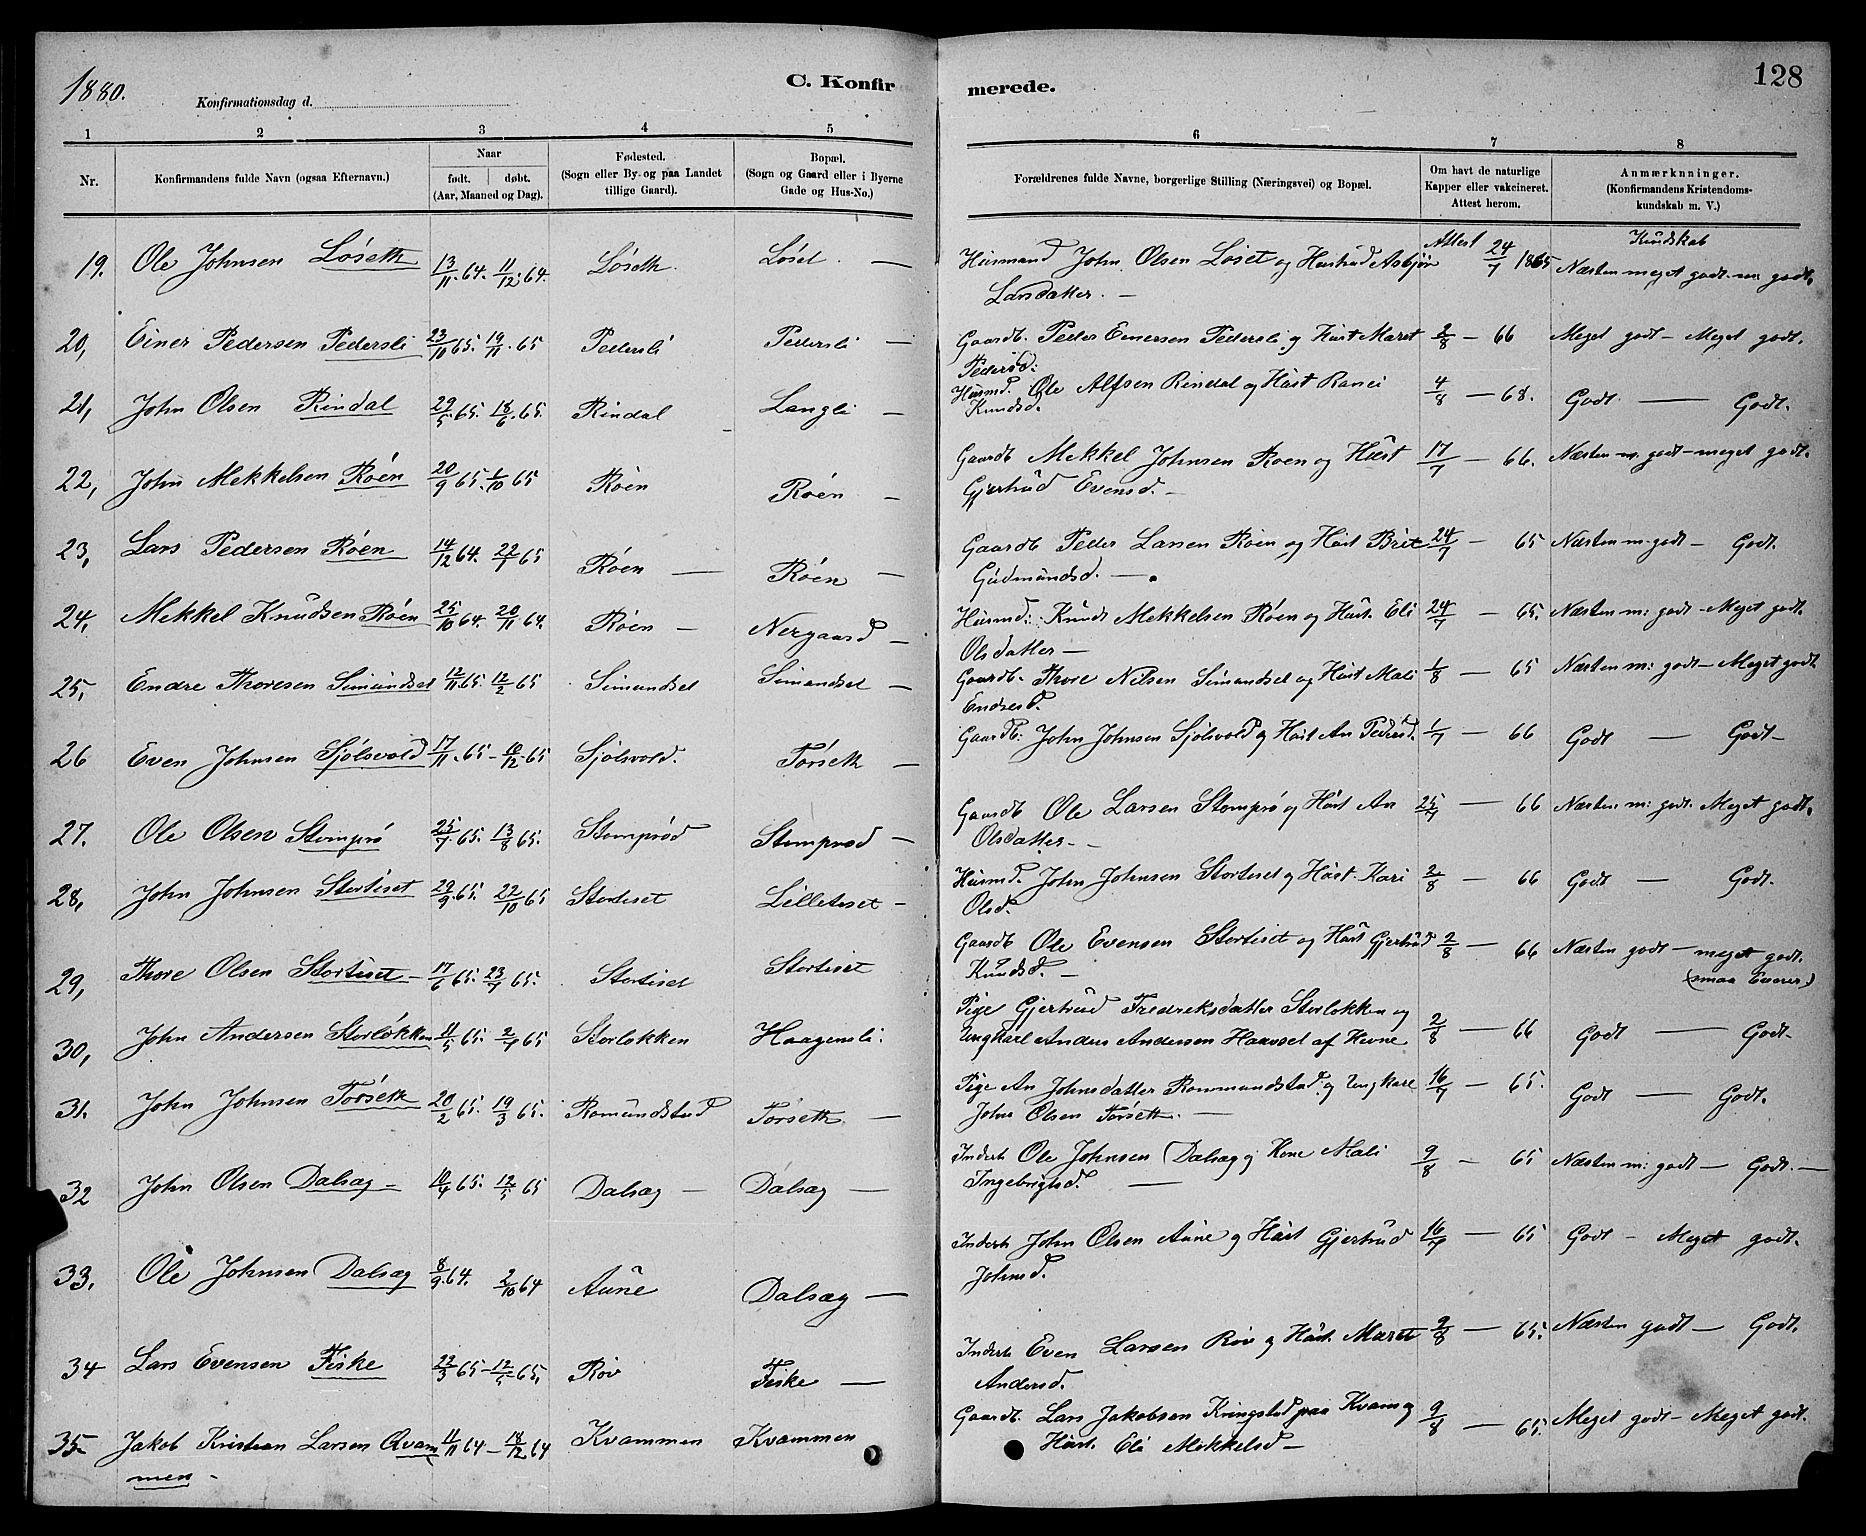 1880.
Konfirmationsdag d.
C. Konfir
merede.
128
1 2 3 4 5 6 7 8
Nr.
Konfirmandens fulde Navn (ogsaa Efternavn.)
Naar
født. døbt.
(Aar, Maaned og Dag).
Fødested.
(Sogn eller By og paa Landet
tillige Gaard).
Bopæl.
(Sogn og Gaard eller i Byerne
Gade og Hus-No.)
Forældrenes fulde Navne, borgerlige Stilling (Næringsvei) og Bopæl.
Om havt de naturlige
Kopper eller vakcineret.
Attest herom.
Anmærkninger.
(Konfirmandens Kristendoms-
kundskab m. V.)
19. Ole Johnsen Löseth 13/11 64. 11/12 64. Löseth. Löset — Husmand John Olsen Löset og Hustrud Asbjör Attest 24/7 1865 Kundskab
Landatter. — Næsten meget godt m: godt.
20, Einer Pedersen Pedersli 23/10 65. 19/11 65 Pedersli Pedersli — Gaardb. Peder Einersen Pedersli og Hust Maret 2/8 — 66 Meget godt – Meget godt.
Pedersd:
21, John Olsen Rindal 29/5 65. 18/6 65. Rindal Langli — Husmd. Ole Alfsen Rindal og Hust Ranei 4/8 — 68. Godt — Godt.
Knudsd.
22, John Mekkelsen Röen 20/9 65. 1/10 65 Röen Röen — Gaardb Mekkel Johnsen Roen og Hust 17/7 — 66. Næsten m. godt – meget godt.
Gjertrud Evensd. —
23, Lars Pedersen Röen 14/12 64. 22/1 65 Röen — Röen — Gaardb Peder Larsen Roen og Hust Brit 24/7 — 65 Næsten m. godt — Godt.
Gudmundsd. —
24, Mekkel Knudsen Röen 25/10 64. 20/11 64. Röen — Nergaard — Husmd: Knudt Mekkelsen Röen og Hust. Eli 24/7 — 65. Næsten m: godt – Meget godt.
Olsdatter —
25, Endre Thoresen Simundset 12/11 65. 12/2 65 Simundset Simundset — Gaardb. Thore Nilsen Simundset og Hust Mali 1/8 — 65 Næsten m: godt – Meget godt
Endresd.
26 Even Johnsen Sjölsvold 17/11 65 – 10/12 65 Sjölsvold. Törseth — Gaardb: John Johnsen Sjölsvold og Hust An Pedersd. 1/7 — 66 Godt — Godt –
27. Ole Olsen Stomprö 25/7 65. 13/8 65. Stompröd Stomprod — Gaardb Ole Larsen Stomprö og Hust An 25/7 — 66 Næsten m: godt. Meget godt.
Olsdatter –
28, John Johnsen Stortiset 29/9 65. 22/10 65 Stortiset Lilletiset – Husmd. John Johnsen Stortiset og Hust. Kari 2/8 — 66 Godt — Godt.
Olsd.
29, Thore Olsen Stortiset – 17/6 65. 23/7 65. Stortiset Stortiset Gaardb Ole Evensen Stortiset og Hust Gjertrud 2/8 — 66 Næsten godt — meget godt.
Knudsd. — (smaa Evner)
30, John Andersen Storlökken 11/5 65. 2/7 65 Storlokken Haagensli. Pige Gjertrud Fredreksdatter Storlokken og
Ungkarl Anders Andersen Haavset af Hevne 2/8 — 66 Godt — Godt –
31. John Johnsen Törseth 20/2 65. 19/3 65. Romundstad Torseth — Pige An Johnsdatter Rommundstad og Ungkarl 16/7 — 65. Godt — Godt.
John Olsen Torseth. —
32 John Olsen Dalsæg – 10/4 65. 12/5 65 Dalsæg — Dalsæg — Inderst Ole Johnsen Dalsæg og Kone Mali 9/8 – 65 Næsten m: godt — Godt. —
Ingebrigtsd. —
33. Ole Johnsen Dalsæg 8/9 64. 2/10 64 Aune Dalsæg — Inderst John Olsen Aune og Hust Gjertrud 16/7 — 65 Godt – Meget godt.
Johnsd.
34 Lars Evensen Fiske 22/3 65 – 12/5 65. Röv Fiske — Inderst Even Larsen Röv og Hust. Maret 9/8 — 65. Næsten godt — Godt.
Andersd.
35 Jakob Kristian Larsen Qvam 11/11 64 – 18/12 64 Kvammen Kvammen Gaardb. Lars Jakobsen Kringstad paa Kvam og 9/8 — 65. Meget godt – Meget godt.
men – Hust. Eli Mekkelsd —